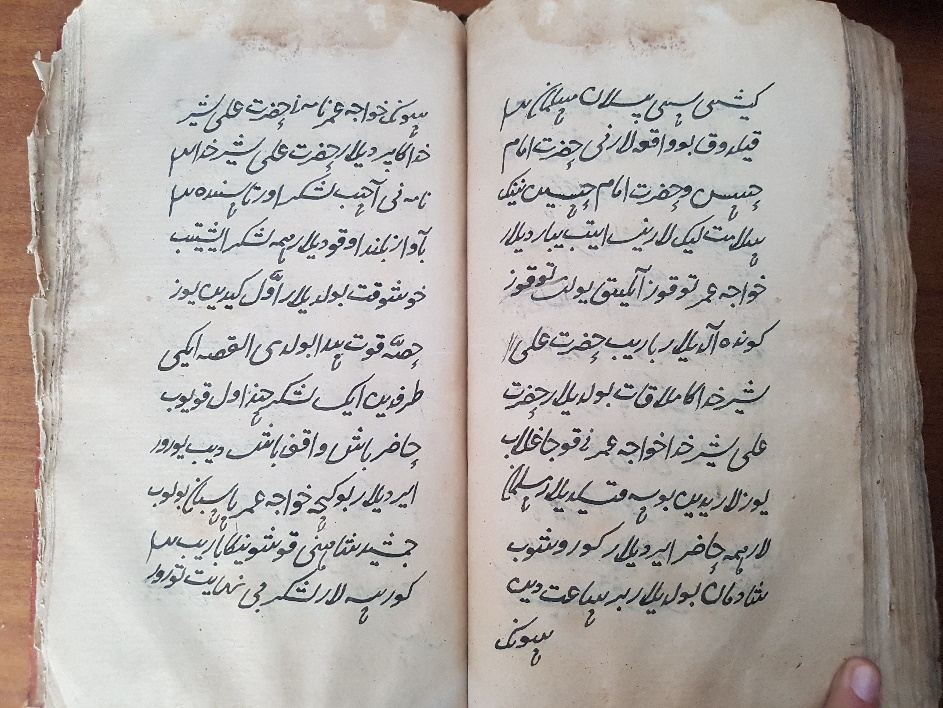 کیشی سیسی بیسلان مسلمان
قیلدوق بو واقعه لارنی حضرت امام
حسن و حضرت امام حسین نینک
سلامت لیک لارینی ایتیب یبار دیلار
خواجه عمر توقوز آیلیق یولنی توقوز
کونده آلدیلار باریب حضرت علی
شیر خداکا ملاقات بولدیلار حضرت
علی شیر خدا خواجه عمرنی قوجاغلاب
یوزلاریدین بوسه قیلدیلار مسلمان
لار همه حاضر ایردیلار کوروشوب
شادمان بولدیلار بر ساعت دین
سونک
سونک خواجه عمر نامه نی حضرت علی شیر
خداکا بردیلار حضرت علی شیر خدا
نامه نی آچیب لشکر اورتاسنده
بآواز بلند اوقودیلار همه لشکر ایشیتیب
خوشوقت بولدیلار اوّل کیدین یوز
حصّه قوت پیدا بولدی القصه ایکی
طرفدین ایک لشکر چنداول قویوب
حاضر باش واقف باش دیب یورور
ایردیلار بو کیچه خواجه عمر پاسبان بولوب
جمشید شاهنی قوشونیکا باریب
کورسه لار لشکر بی نهایت تورور